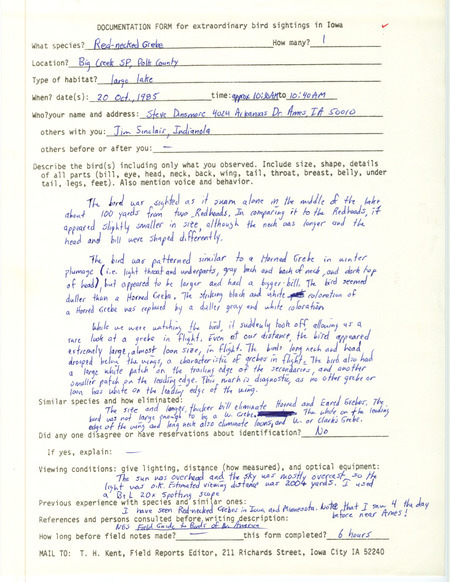 DOCUMENTATION FORM for extraordinary bird sightings in Iowa
What species? Red-necked Grebe How many? 1
Location? Big Creek SP, Polk County
Type of habitat? large lake
When? date(s): 20 Oct., 1985 time: approx 10:30AM to 10:40AM
Who? your name and address: Steve Dinsmore 4024 Arkansas Dr. Ames, IA 50010
others with you: Jim Sinclair, Indianola
others before or after you: —
Describe the bird(s) including only what you observed. Include size, shape, details
of all parts (bill, eye, head, neck, back, wing, tail, throat, breast, belly, under
tail, legs, feet). Also mention voice and behavior.
The bird was sighted as it swam alone in the middle of the lake
about 100 yards from two Redheads. In comparing it to the Redheads, it
appeared slightly smaller in size, although the neck was longer and the
head and bill were shaped differently.
The bird was patterned similar to a Horned Grebe in winter
plumage (i.e. light throat and underparts, gray back and back of neck, and dark top
of head), but appeared to be larger and had a bigger bill. The bird seemed
duller than a Horned Grebe. The striking black and white coloration of
a Horned Grebe was replaced by a duller gray and white coloration.
While we were watching the bird, it suddenly took off allowing us a
rare look at a grebe in flight. Even at our distance, the bird appeared
extremely large, almost loon size, in flight. The birds long neck and head
drooped below the wings, a characteristic of grebes in flight. The bird also had
a large white patch on the trailing edge of the secondaries, and another
smaller patch on the leading edge. This mark is diagnostic, as no other grebe or
loon has white on the leading edge of the wing.
Similar species and how eliminated:
The size and longer, thicker bill eliminate Horned and Eared Grebes. The
bird was not large enough to be a W. Grebe. The white on the leading
edge of the wing and long neck also eliminate loons, and W. or Clark's Grebe.
Did any one disagree or have reservations about identification? No
If yes, explain: —
Viewing conditions: give lighting, distance (how measured), and optical equipment:
The sun was overhead and the sky was mostly overcast, so the
light was o.k. Estimated viewing distance was 200+ yards. I used
a B+L 20x spotting scope
Previous experience with species and similar ones:
I have seen Red-necked Grebes in Iowa and Minnesota. Note that I saw 4 the day
before near Ames!
References and persons consulted before writing description:
NGS Field Guide to Birds of N. America
How long before field notes made? — this form completed? 6 hours
MAIL TO: T. H. Kent, Field Reports Editor, 211 Richards Street, Iowa City IA 52240